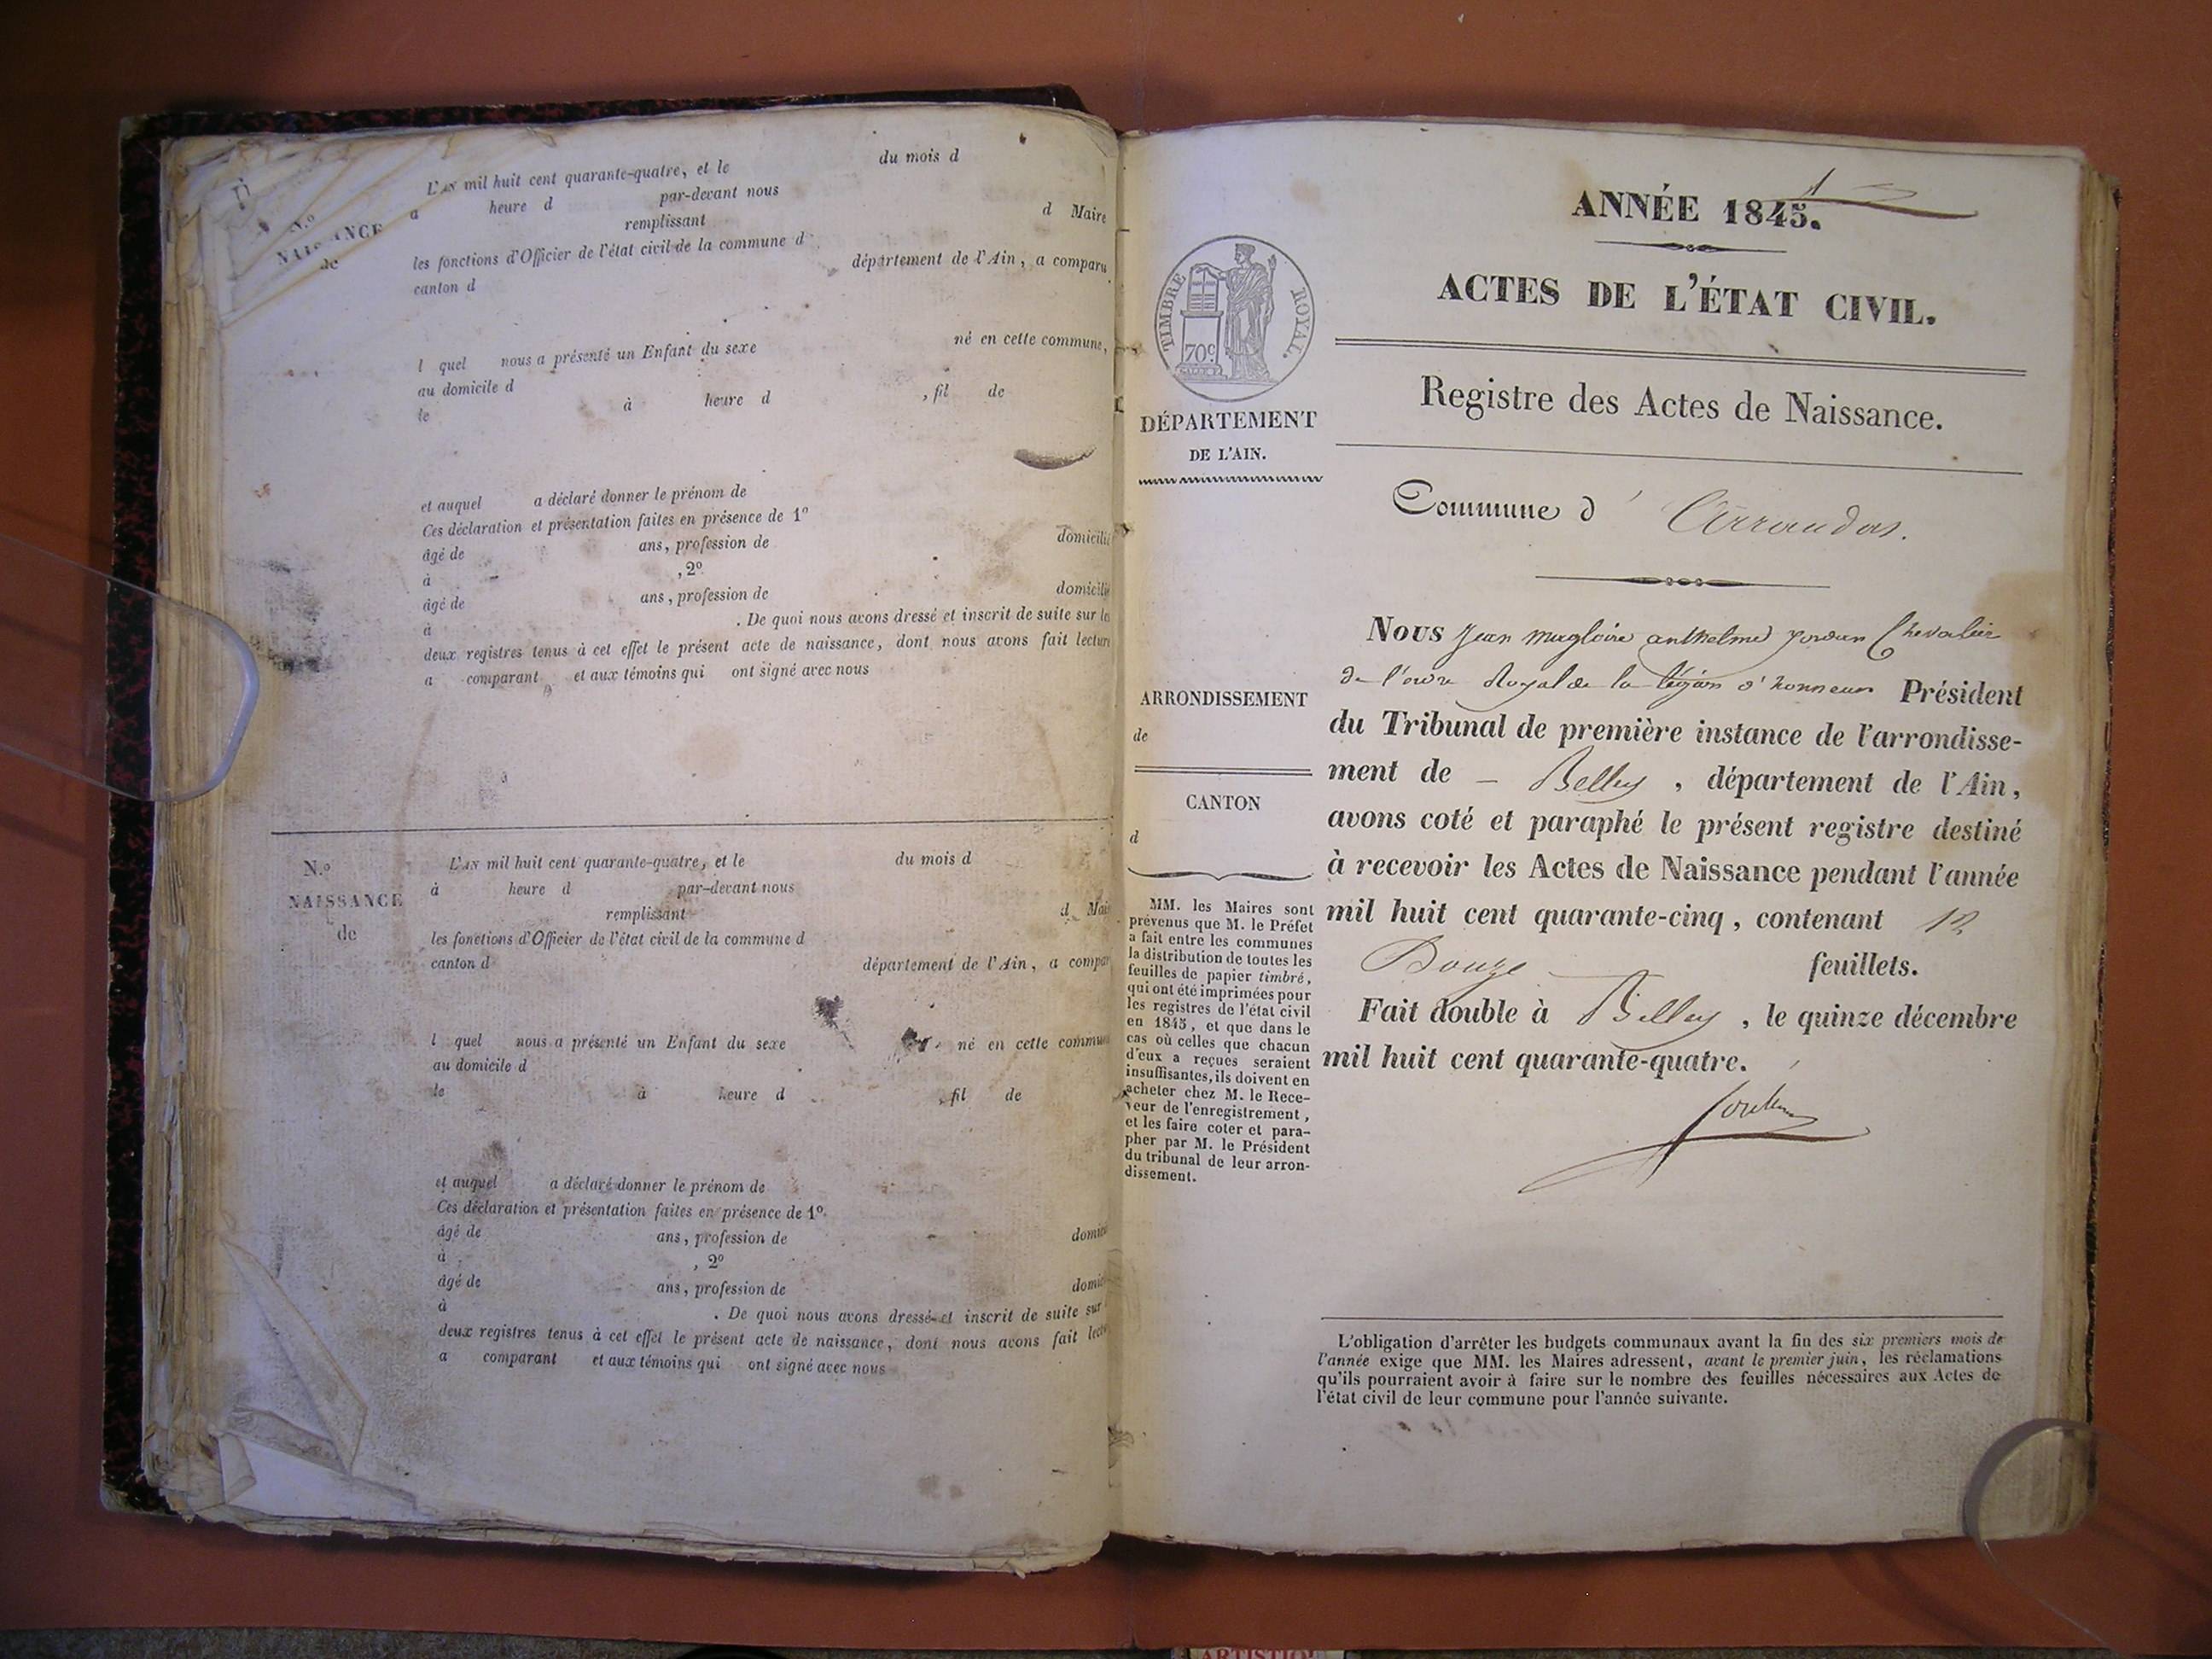 L'AN mil huit cent quarante-quatre, et le du mois d
a heure d par-devant nous
remplissant d Maire
N.º
NAISSANCE
de
les fonctions d'Officier de l'état civil de la commune d
canton d département de l'Ain, a comparu
l quel nous a présenté un Enfant du sexe né en cette commune,
au domicile d
le à heure d , fil de
et auquel a déclaré donner le prénom de
Ces déclaration et présentation faites en présence de 1º
âgé de ans, profession de domicilié
à , 2º
âgé de ans, profession de domicilié
à . De quoi nous avons dressé et inscrit de suite sur les
deux registres tenus à cet effet le présent acte de naissance, dont nous avons fait lecture
a comparant et aux témoins qui ont signé avec nous
N.º
NAISSANCE
de
L'AN mil huit cent quarante-quatre, et le du mois d
à heure d par-devant nous
remplissant d Mai
les fonctions d'Officier de l'état civil de la commune d
canton d département de l'Ain, a compar
l quel nous a présenté un Enfant du sexe né en cette commun
au domicile d
le à heure d , fil de
et auquel a déclaré donner le prénom de
Ces déclaration et présentation faites en présence de 1º
âgé de ans, profession de domici
à , 2º
âgé de ans, profession de domici
à . De quoi nous avons dressé et inscrit de suite sur
deux registres tenus à cet effet le présent acte de naissance, dont nous avons fait lectu
a comparant et aux témoins qui ont signé avec nous
1
ANNÉE 1845.
ACTES DE L'ÉTAT CIVIL.
TIMBRE ROYAL.
70c
Registre des Actes de Naissance.
DÉPARTEMENT
DE L'AIN.
Commune d' Arrandas.
Nous Jean magloire anthelme jordan Chevalier
de l'ordre Royal de la légion d'honneur Président
du Tribunal de première instance de l'arrondisse-
ment de – Belley, département de l'Ain,
avons coté et paraphé le présent registre destiné
à recevoir les Actes de Naissance pendant l'année
mil huit cent quarante-cinq, contenant 12
Douze feuillets.
Fait double à Belley, le quinze décembre
mil huit cent quarante-quatre.
ARRONDISSEMENT
de
CANTON
d
MM. les Maires sont
prévenus que M. le Préfet
a fait entre les communes
la distribution de toutes les
feuilles de papier timbré,
qui ont été imprimées pour
les registres de l'état civil
en 1845, et que dans le
cas où celles que chacun
d'eux a reçues seraient
insuffisantes, ils doivent en
acheter chez M. le Rece-
veur de l'enregistrement,
et les faire coter et para-
pher par M. le Président
du tribunal de leur arron-
dissement.
L'obligation d'arrêter les budgets communaux avant la fin des six premiers mois de
l'année exige que MM. les Maires adressent, avant le premier juin, les réclamations
qu'ils pourraient avoir à faire sur le nombre des feuilles nécessaires aux Actes de
l'état civil de leur commune pour l'année suivante.